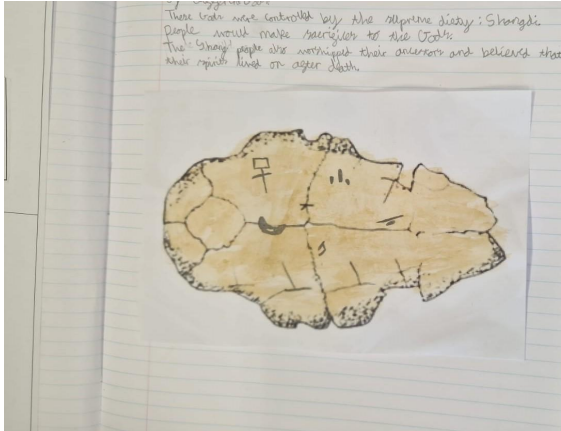 These Gods were controlled by the supreme diety: Shangdi.
People would make sacrifices to the Gods.
The 'Shang' people also worshipped their ancestors and believed that
their spirits lived on after death.